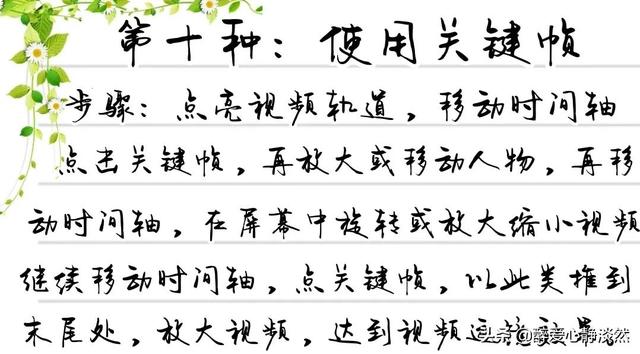 第十种：使用关键帧
步骤：点亮视频轨道，移动时间轴
点击关键帧，再放大或移动人物，再移
动时间轴，在屏幕中旋转或放大缩小视频
继续移动时间轴，点关键帧，以此类推到
末尾处，放大视频，达到视频运
头条@醉爱心静淡然